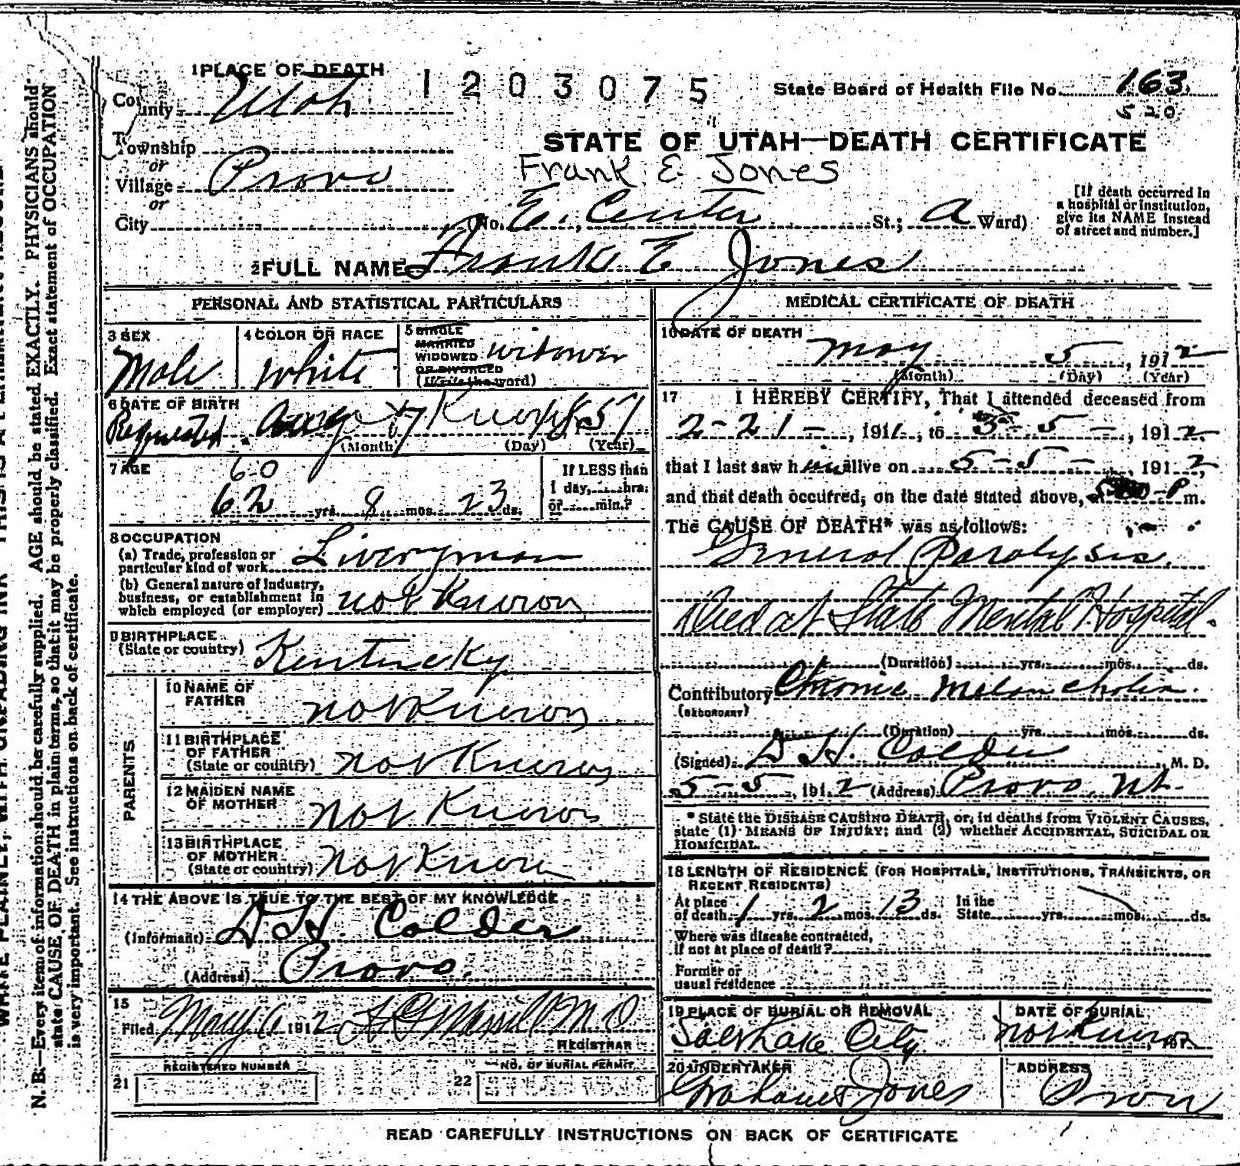 1 PLACE OF DEATH
1203075
State Board of Health File No. 163
520
County Utah
STATE OF UTAH—DEATH CERTIFICATE
Township
or
Village Provo
or
Frank E Jones
[If death occurred in
a hospital or institution,
give its NAME instead
of street and number.]
City No. E. Center St.; Ward)
2 FULL NAME Frank E Jones
PERSONAL AND STATISTICAL PARTICULARS
3 SEX
Male
4 COLOR OR RACE
White
5 SINGLE
MARRIED
WIDOWED
OR DIVORCED
(Write the word)
widower
6 DATE OF BIRTH
(Month) (Day) (Year)
7 AGE
60
62 yrs. 8 mos. 23 ds.
If LESS than
1 day, hrs.
or min.?
8 OCCUPATION
(a) Trade, profession or
particular kind of work Liveryman
(b) General nature of Industry,
business, or establishment in
which employed (or employer) not Known
9 BIRTHPLACE
(State or country) Kentucky
PARENTS
10 NAME OF
FATHER not Known
11 BIRTHPLACE
OF FATHER
(State or country) not Known
12 MAIDEN NAME
OF MOTHER not Known
13 BIRTHPLACE
OF MOTHER
(State or country) not Known
14 THE ABOVE IS TRUE TO THE BEST OF MY KNOWLEDGE
(Informant) D H. Calder
(Address) Provo.
15
Filed May 6 1912 M D
REGISTRAR
REGISTERED NUMBER
21
NO. OF BURIAL PERMIT
22
MEDICAL CERTIFICATE OF DEATH
16 DATE OF DEATH
May 5, 1912
(Month) (Day) (Year)
17 I HEREBY CERTIFY, That I attended deceased from
2-21-, 1911, to 5-5-, 1912
that I last saw him alive on 5-5-, 1912
and that death occurred, on the date stated above, P m.
The CAUSE OF DEATH* was as follows:
General Paralysis.
Died at State Mental Hospital.
(Duration) yrs. mos. ds.
Contributory Chronic Melancholia.
(SECONDARY)
(Duration) yrs. mos. ds.
(Signed) D H. Calder, M. D.
5-5, 1912 (Address) Provo, Ut.
* State the DISEASE CAUSING DEATH, or, in deaths from VIOLENT CAUSES,
state (1) MEANS OF INJURY; and (2) whether ACCIDENTAL, SUICIDAL OR
HOMICIDAL.
18 LENGTH OF RESIDENCE (FOR HOSPITALS, INSTITUTIONS, TRANSIENTS, OR
RECENT RESIDENTS)
At place
of death 1 yrs. 2 mos. 13 ds.
In the
State yrs. mos. ds.
Where was disease contracted,
if not at place of death?
Former or
usual residence
19 PLACE OF BURIAL OR REMOVAL
Salt Lake City
DATE OF BURIAL
not Known, 191
20 UNDERTAKER
Jones
ADDRESS
Provo
READ CAREFULLY INSTRUCTIONS ON BACK OF CERTIFICATE
N. B.—Every item of information should be carefully supplied. AGE should be stated EXACTLY. PHYSICIANS should
state CAUSE OF DEATH in plain terms, so that it may be properly classified. Exact statement of OCCUPATION
is very important. See instructions on back of certificate.